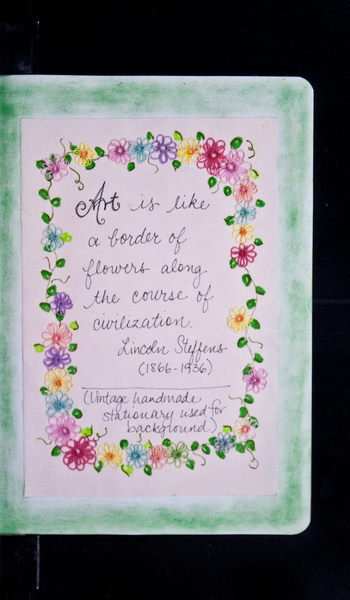 Art is like
a border of
flowers along
the course of
civilization.
Lincoln Steffens
(1866-1936)
(Vintage handmade
stationary used for
background.)